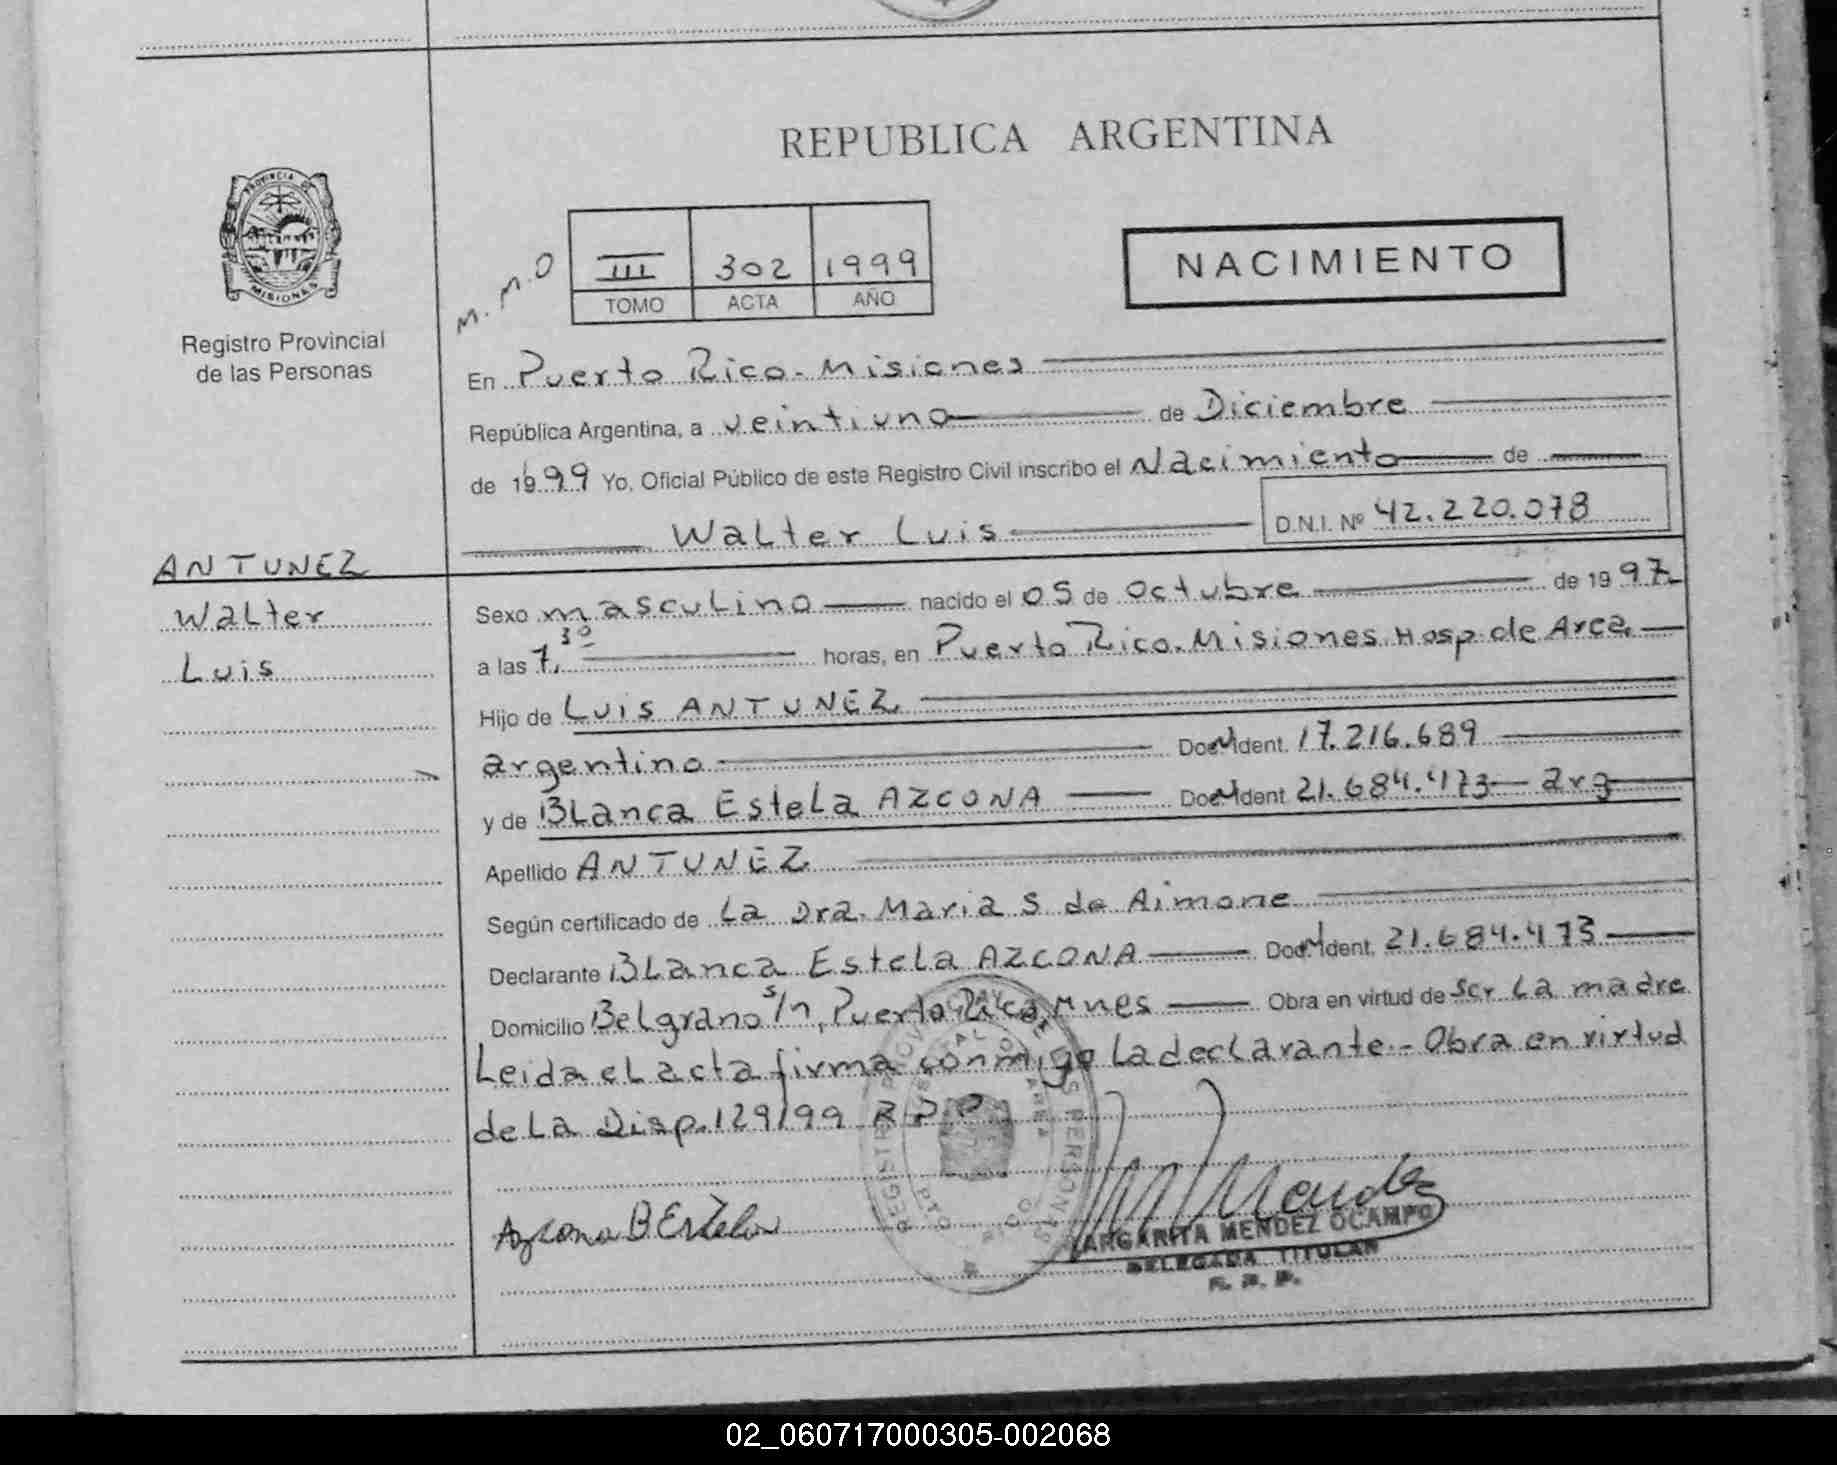 REPUBLICA ARGENTINA
PROVINCIA DE
MISIONES
Registro Provincial
de las Personas
M.M.O
III 302 1999
TOMO ACTA AÑO
NACIMIENTO
En Puerto Rico - Misiones
República Argentina, a veintiuno de Diciembre
de 1999 Yo, Oficial Público de este Registro Civil inscribo el Nacimiento de
Walter Luis D.N.I. Nº 42.220.078
ANTUNEZ
Walter
Luis
Sexo masculino nacido el 05 de Octubre de 1997
a las 7.30 horas, en Puerto Rico. Misiones Hosp. de Area
Hijo de Luis ANTUNEZ
argentino Doc M Ident. 17.216.689
y de Blanca Estela AZCONA Doc M Ident. 21.684.473 - arg
Apellido ANTUNEZ
Según certificado de La Dra. Maria S de Aimone
Declarante Blanca Estela AZCONA Doc M Ident. 21.684.473
Domicilio Belgrano s/n, Puerto Rico Mnes Obra en virtud de ser La madre
Leida el acta firma conmigo la declarante.- Obra en virtud
de La Disp. 129/99 R.P.P.
Azcona B Estela
M Mendez
MARGARITA MENDEZ OCAMPO
DELEGADA TITULAR
R. P. P.
02_060717000305-002068